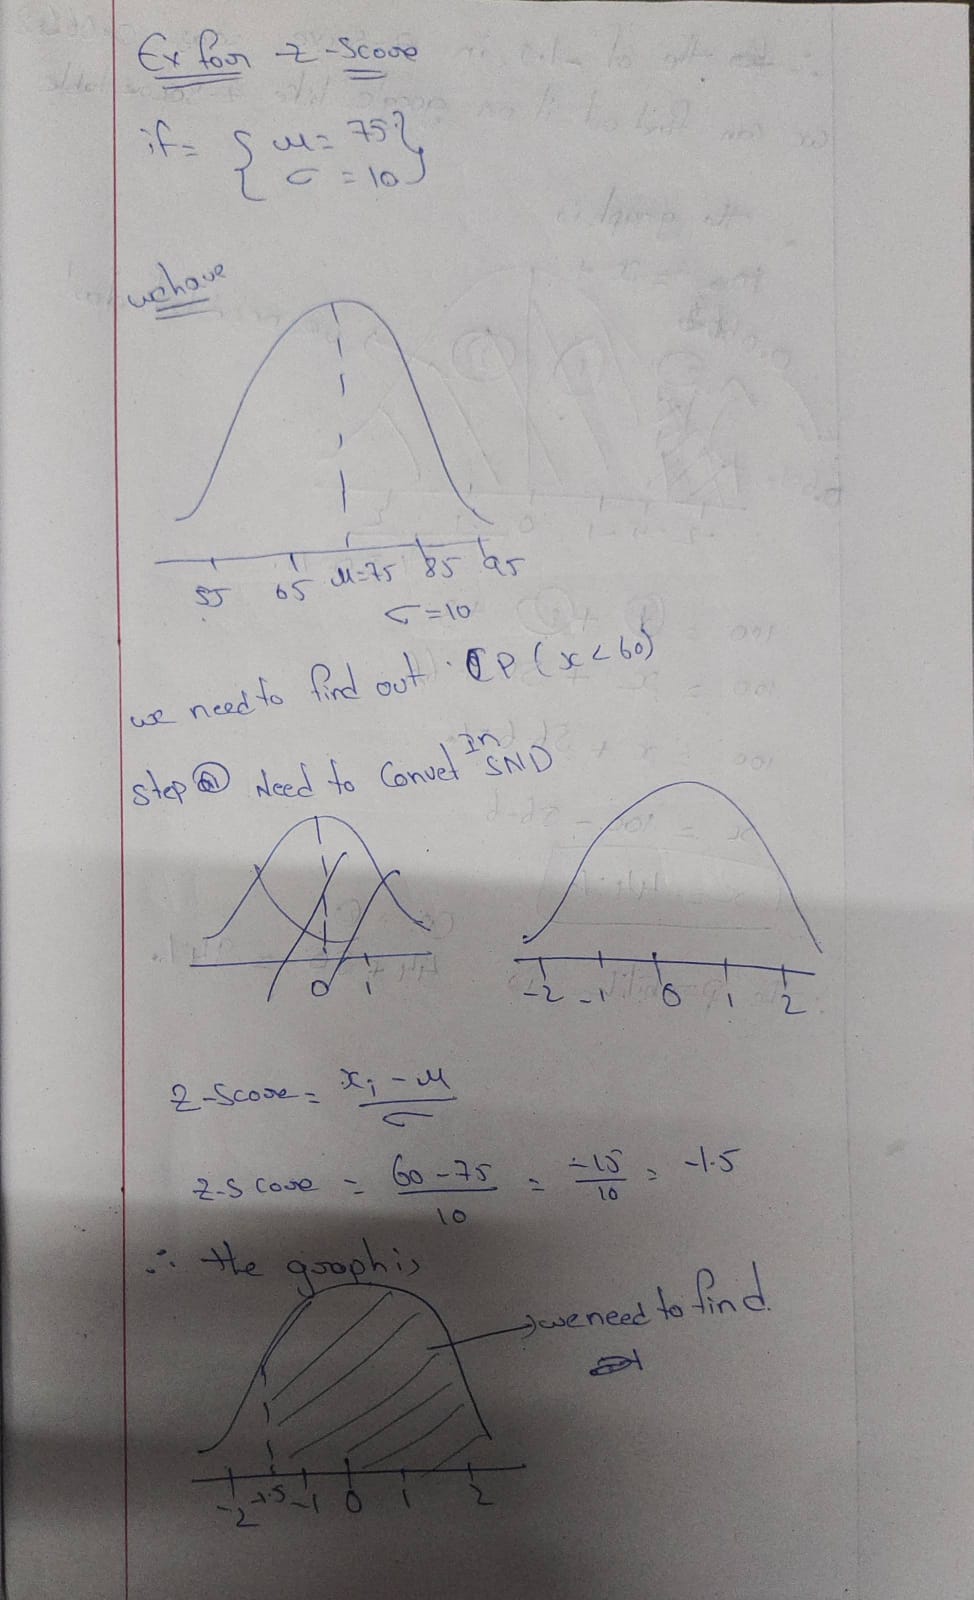 Ex for z-score
if = { μ = 75
σ = 10 }
we have
55 65 μ=75 85 95
σ=10
we need to find out P(x<60)
step Need to Convet In SND
0 1
-2 -1 0 1 2
z-score = xi - μ / σ
z-score = 60-75 / 10 = -15 / 10 = -1.5
∴ the graph is
→ we need to find
-2 -1.5 -1 0 1 2